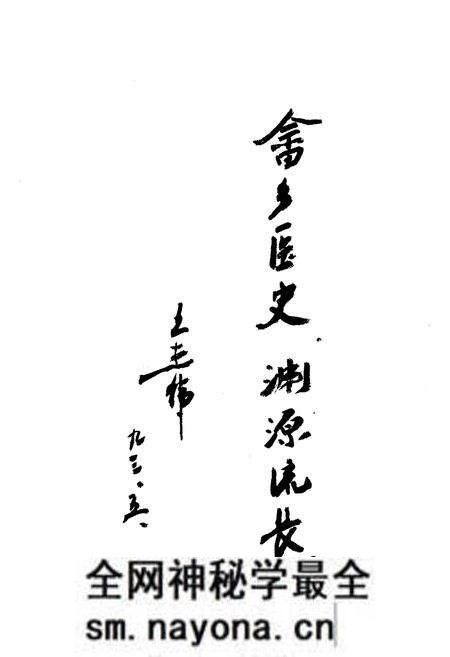 畲乡医史、渊源流长
九三、五、
全网神秘学最全
sm.nayona.cn